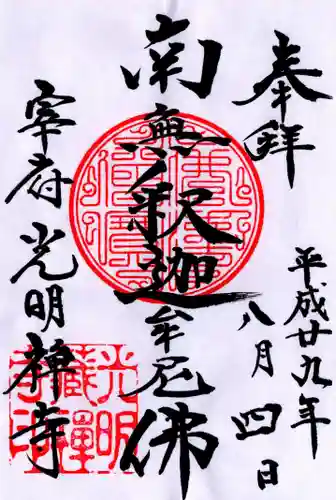 奉拜
平成廿九年
八月四日
南無釈迦牟尼佛
宰府光明禅寺